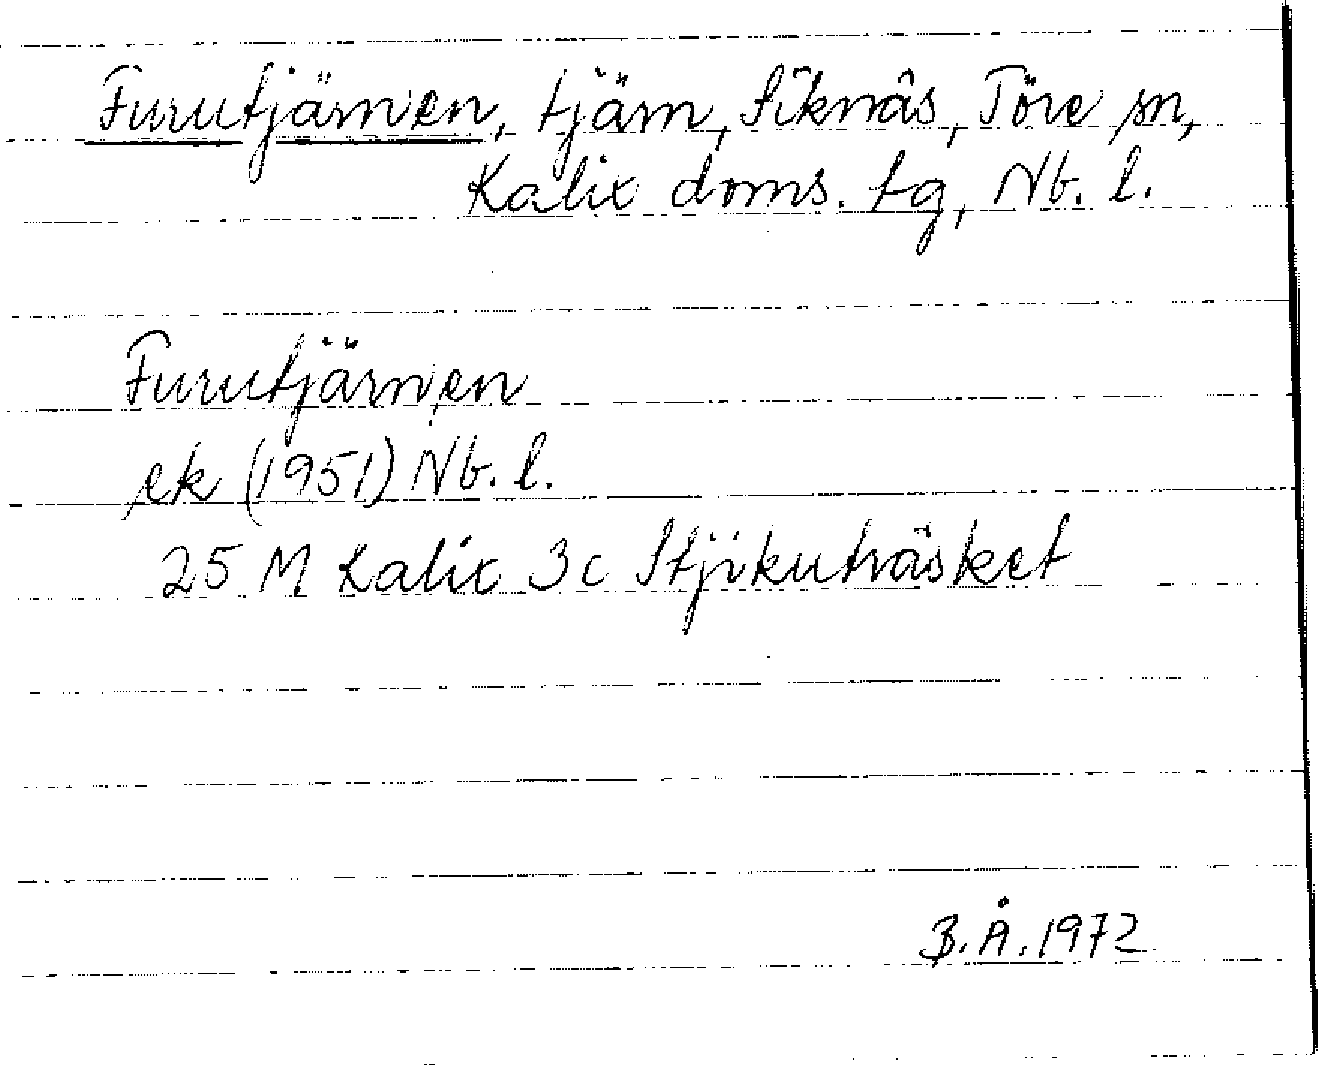 Furutjärnen, tjärn, Siknäs, Töre sn,
Kalix doms. tg, Nb. l.
Furutjärnen
ek (1951) Nb. l.
25 M Kalix 3c Stjikuträsket
B.Å. 1972